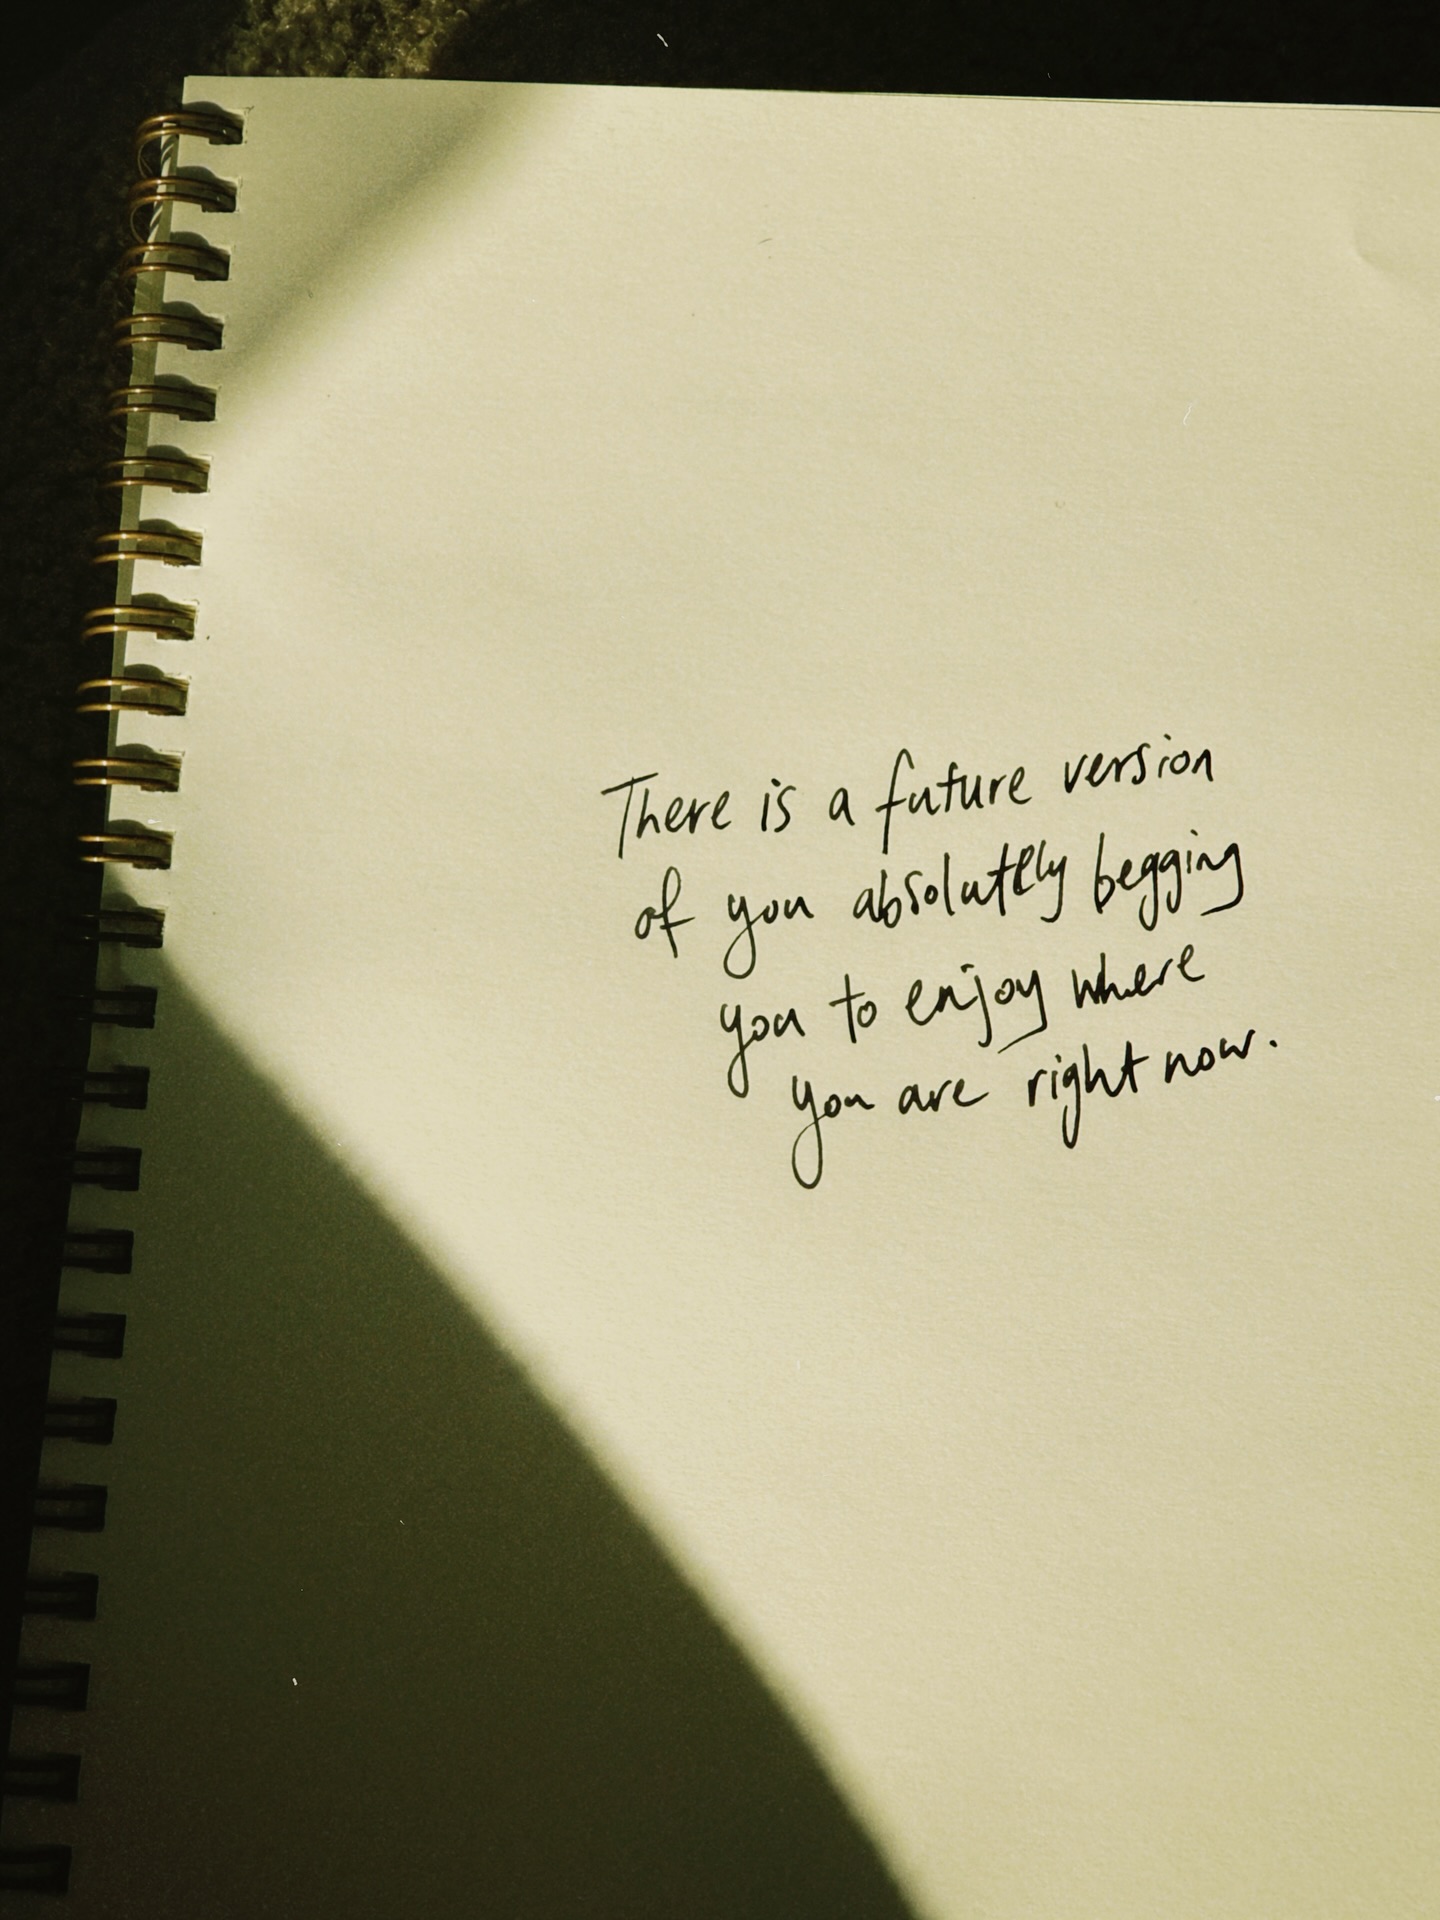 There is a future version
of you absolutely begging
you to enjoy where
you are right now.